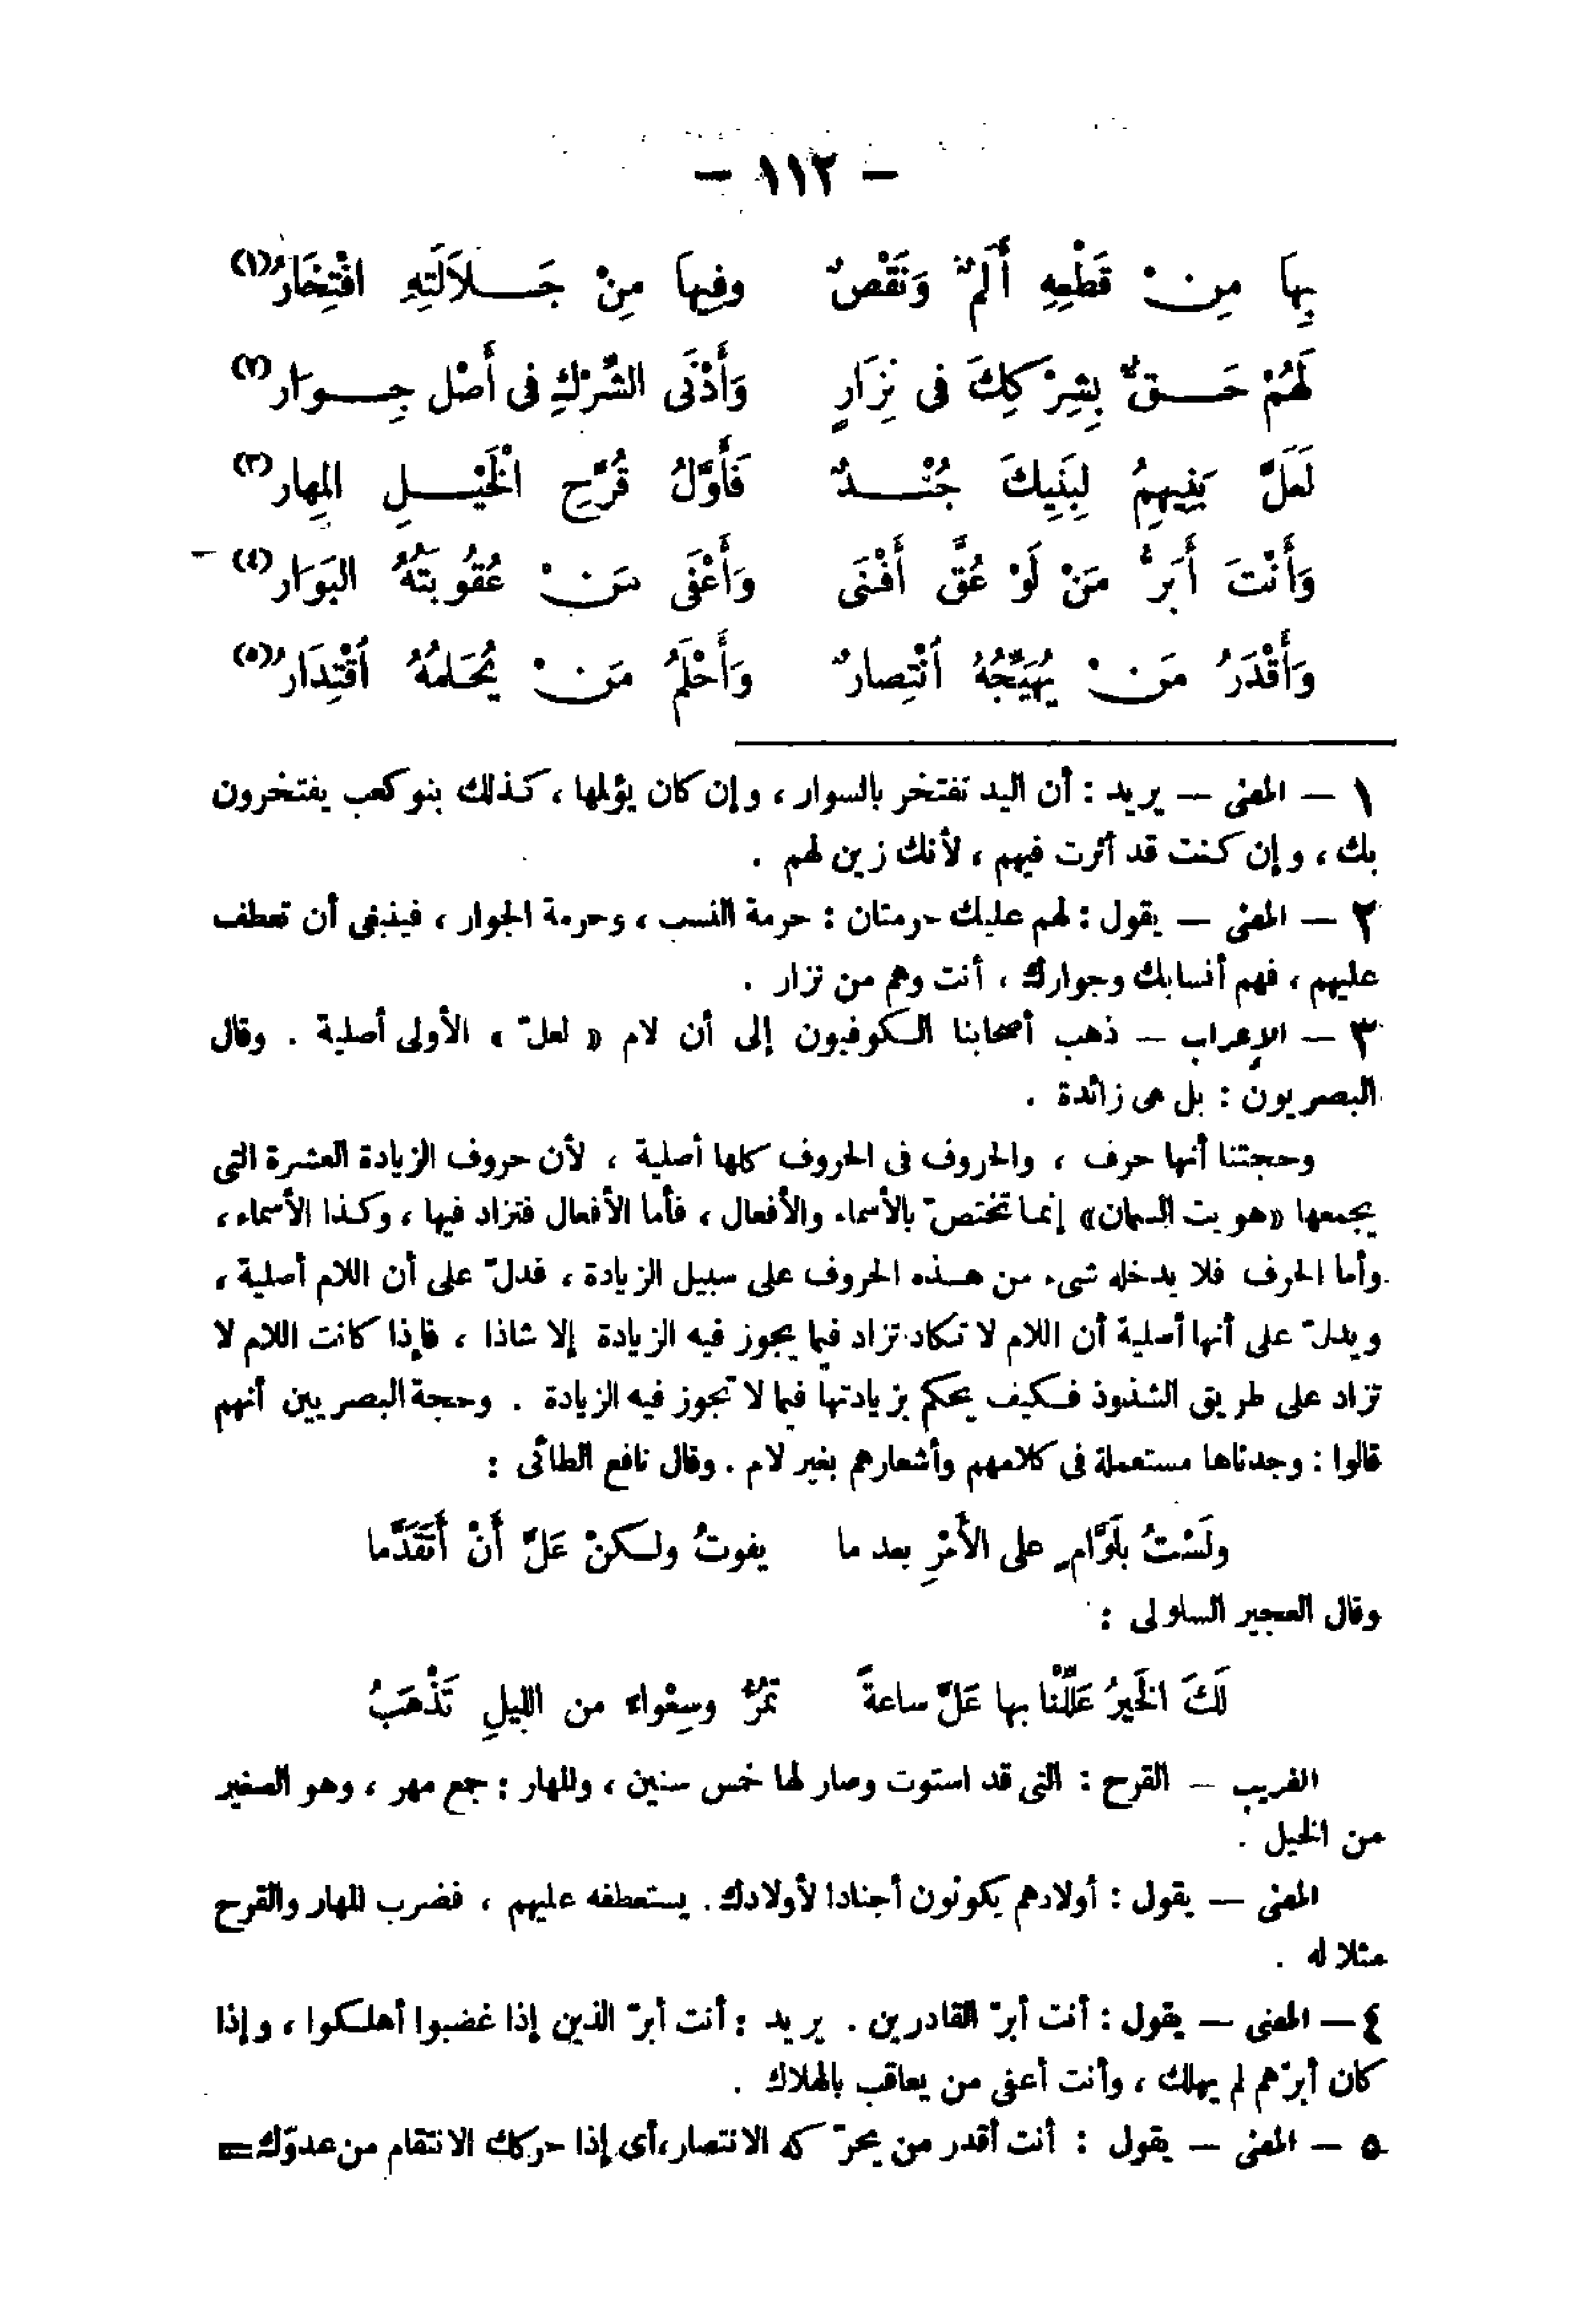 — ١١٢ —
بِها مِنْ قَطْعِهِ أَلَمٌ وَنَقْصٌ وفِيها مِنْ جَلاَلَتِهِ افْتِخَارُ(١)
لَهُمْ حَقٌّ بِشِرْكِكَ فى نِزَارٍ وَأَدْنَى الشِّرْكِ فى أَصْل جِوَار(٢)
لَعَلَّ بَنِيهِمُ لِبَنِيكَ جُنْدٌ فَأَوَّلُ قُرَّحِ الْخَيْلِ المِهار(٣)
وَأَنْتَ أَبَرُّ مَنْ لَوْ عُقَّ أَفْنَى وَأَعْفَى مَنْ عُقُوبَتُهُ البَوَار(٤)
وَأَقْدَرُ مَنْ يُهَيِّجُهُ اُنْتِصارٌ وَأَحْلَمُ مَنْ يُحَلِّمُهُ اُقْتِدَارُ(٥)
١ — المعنى — يريد : أن اليد تفتخر بالسوار ، وإن كان يؤلمها ، كذلك بنو كعب يفتخرون
بك ، وإن كنت قد أثرت فيهم ، لأنك زين لهم .
٢ — المعنى — يقول : لهم عليك حرمتان : حرمة النسب ، وحرمة الجوار ، فينبغى أن تعطف
عليهم ، فهم أنسابك وجوارك ، أنت وهم من نزار .
٣ — الإعراب — ذهب أصحابنا الكوفيون إلى أن لام « لعلّ » الأولى أصلية . وقال
البصريون : بل هى زائدة .
وحجتنا أنها حرف ، والحروف فى الحروف كلها أصلية ، لأن حروف الزيادة العشرة التى
يجمعها «هويت السمان» إنما تختصّ بالأسماء والأفعال ، فأما الأفعال فتزاد فيها ، وكذا الأسماء ،
وأما الحرف فلا يدخله شىء من هذه الحروف على سبيل الزيادة ، فدلّ على أن اللام أصلية ،
ويدلّ على أنها أصلية أن اللام لا تكاد تزاد فيما يجوز فيه الزيادة إلا شاذا ، فإذا كانت اللام لا
تزاد على طريق الشذوذ فكيف يحكم بزيادتها فيما لا تجوز فيه الزيادة . وحجة البصريين أنهم
قالوا : وجدناها مستعملة فى كلامهم وأشعارهم بغير لام . وقال نافع الطائى :
ولَسْتُ بلَوَّامٍ على الأَمْرِ بعد ما يفوتُ ولكنْ عَلَّ أَنْ أَتَقَدَّما
وقال العجير السلولى :
لَكَ الخَيرُ عَلِّلْنا بها عَلَّ ساعةً تمُرُّ وسِعْواء من الليلِ تَذْهَبُ
الغريب — القرح : التى قد استوت وصار لها خمس سنين ، والمهار : جمع مهر ، وهو الصغير
من الخيل .
المعنى — يقول : أولادهم يكونون أجنادا لأولادك . يستعطفه عليهم ، فضرب المهار والقرح
مثلا له .
٤ — المعنى — يقول : أنت أبرّ القادرين . يريد : أنت أبرّ الذين إذا غضبوا أهلكوا ، وإذا
كان أبرّهم لم يهلك ، وأنت أعفى من يعاقب بالهلاك .
٥ — المعنى — يقول : أنت أقدر من يحرّكه الانتصار، أى إذا حركك الانتقام من عدوّك=